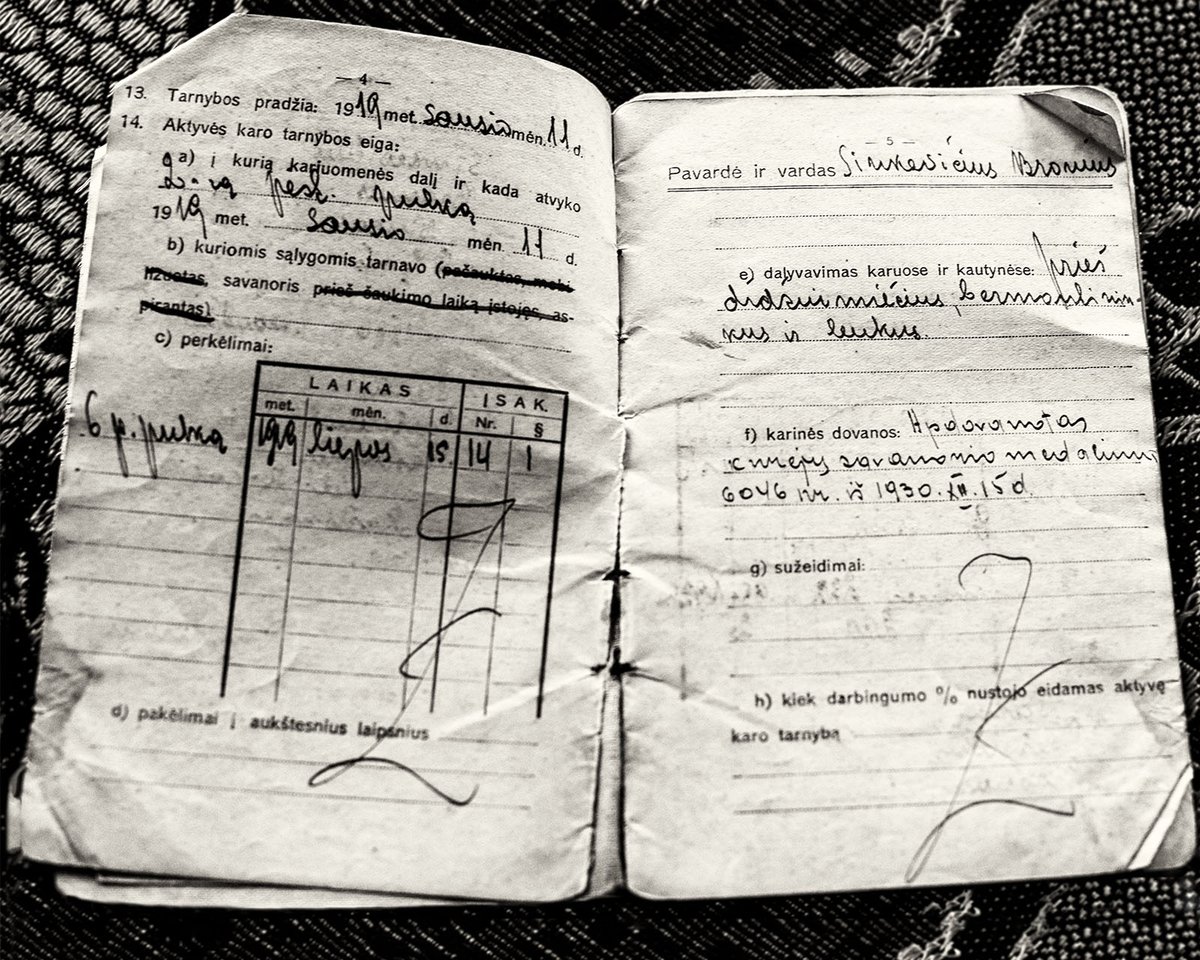 — 4 —
13. Tarnybos pradžia: 1919 met. Sausio mėn. 11 d.
14. Aktyvės karo tarnybos eiga:
a) į kurią kariuomenės dalį ir kada atvyko
2-ą pėst. pulką
1919 met. Sausio mėn. 11 d.
b) kuriomis sąlygomis tarnavo (pašauktas, mobi-
lizuotas, savanoris prieš šaukimo laiką įstojęs, as-
pirantas).
c) perkėlimai:
LAIKAS ĮSAK.
met. mėn. d. Nr. §
6 p. pulką 1919 liepos 15 14 1
d) pakėlimai į aukštesnius laipsnius
— 5 —
Pavardė ir vardas Sinkevičius Bronius
e) dalyvavimas karuose ir kautynėse: prieš
didžiumiečius, bermontinin-
kus ir lenkus.
f) karinės dovanos: Apdovanotas
kūrėjų savanorio medaliumi
6046 nr. iš 1930.XII.15 d.
g) sužeidimai:
h) kiek darbingumo % nustojo eidamas aktyvę
karo tarnybą